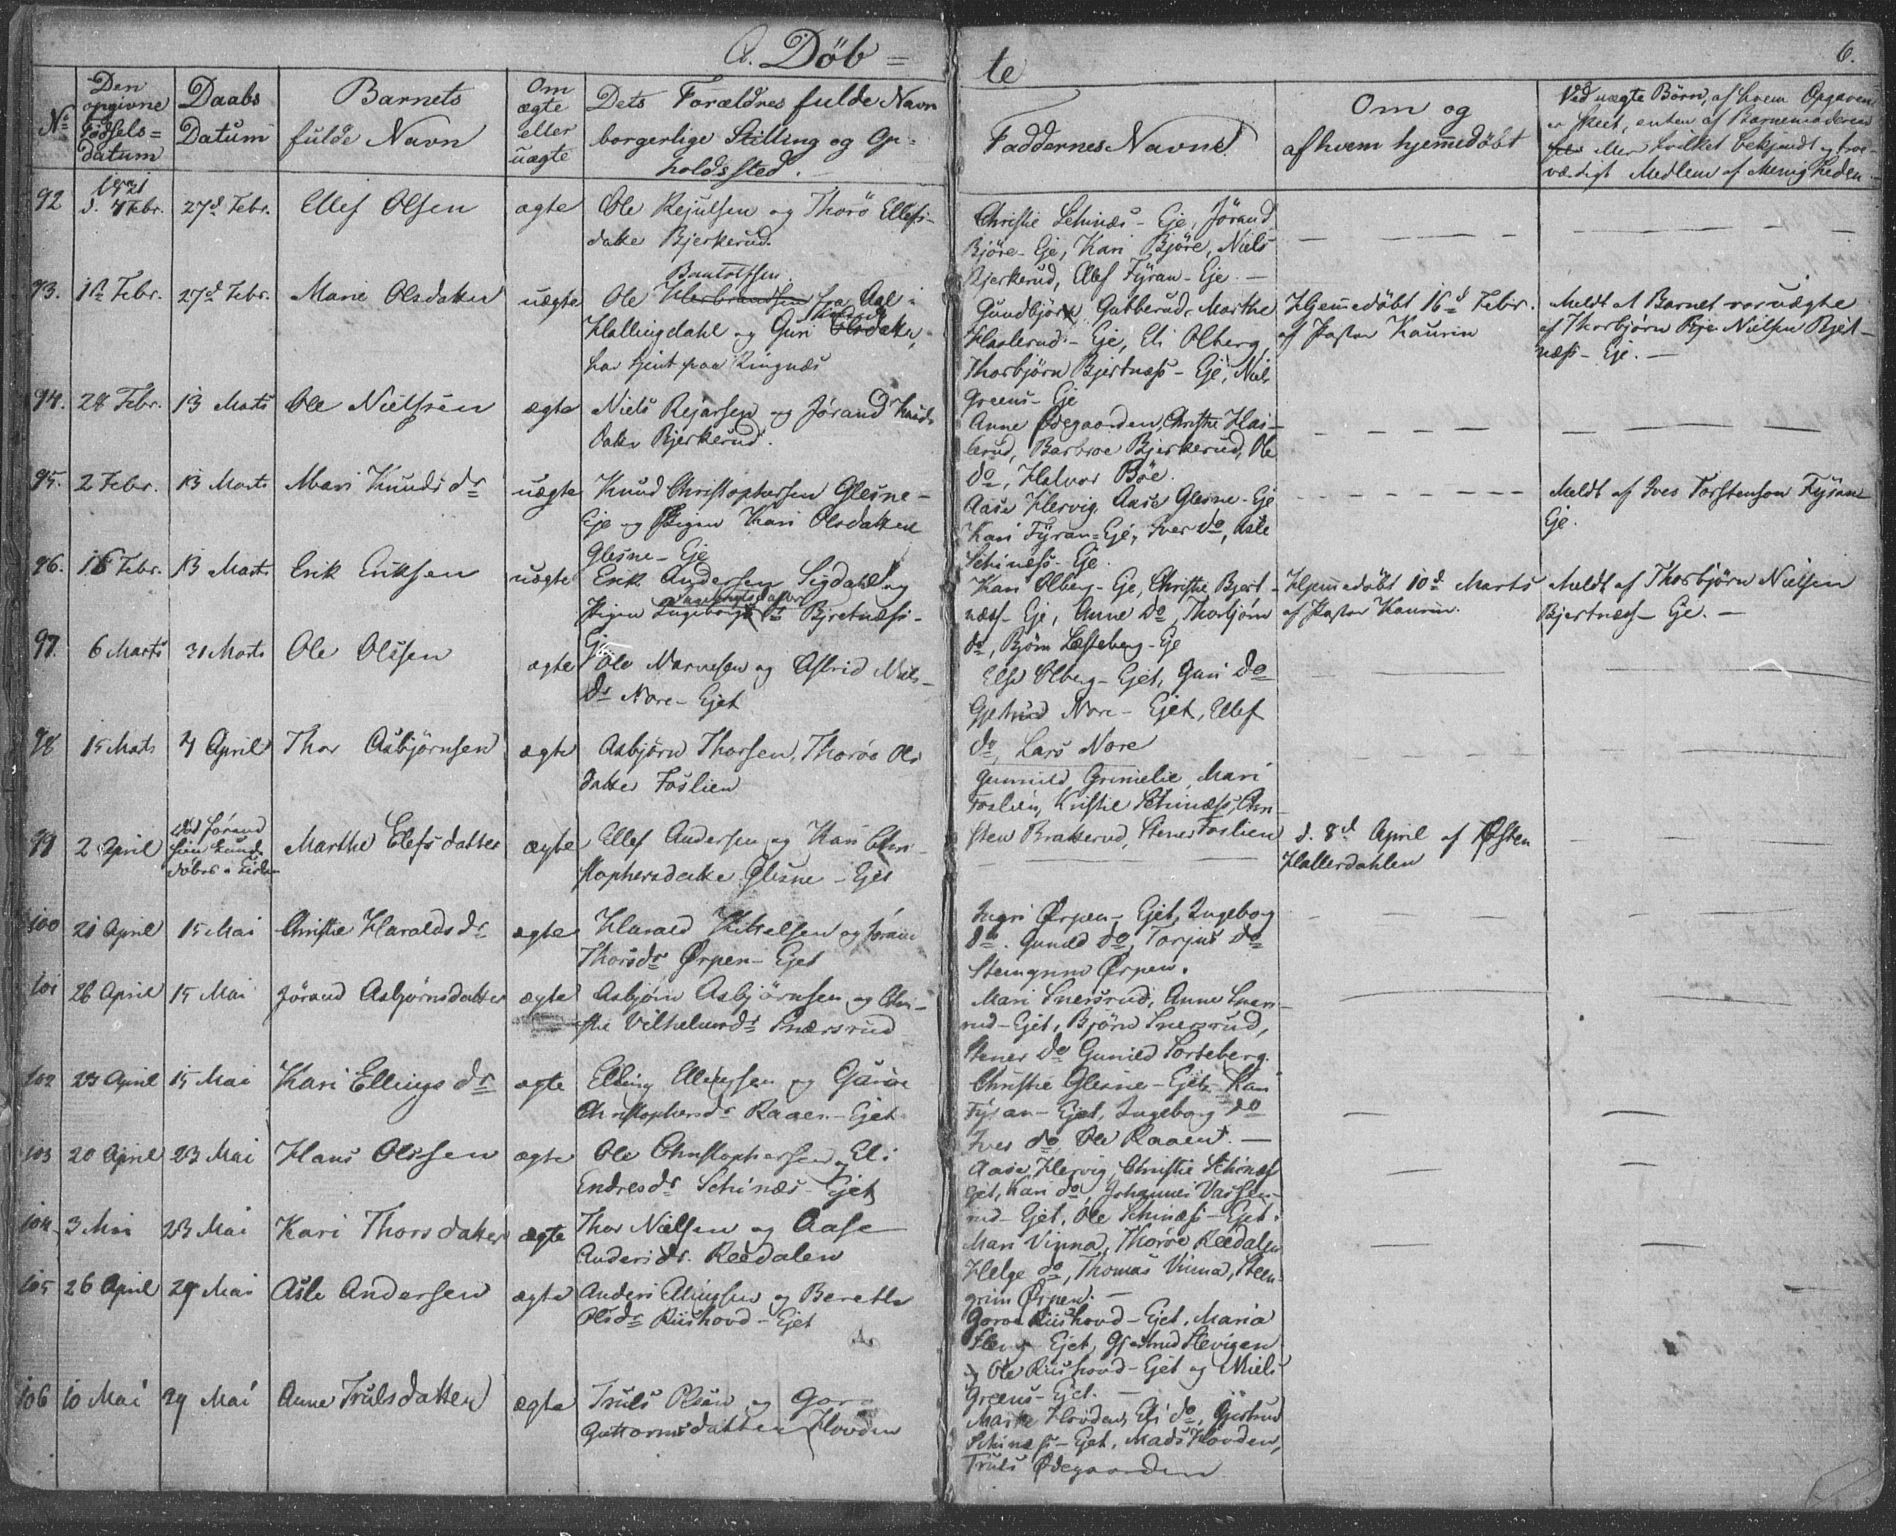 A. Döb = te
6.
No
Den opgivne Födsels= datum
Daabs Datum
Barnets fulde Navn
Om ægte eller uægte
Dets Forældres fulde Navn borgerlige Stilling og Op= holdssted.
Faddernes Navne.
Om og af hvem hjemmedöbt
Ved uægte Börn, af hvem Opgaven er skeet, enten af Barnemoderen eller hvilket bekjendt og tro= værdigt Medlem af Menigheden
92
d. 4 Febr.
27d Febr.
Ellef Olsen
ægte
Ole Rejulsen og Thorö Ellefs-
datter Bjerkerud.
Christie Schinæs - Eje, Jörand
Björe - Eje, Kari Björe, Niels
Bjerkerud, Ellef Fÿran - Eje. -
93.
27d Febr.
Marie Olsdatter
uægte
Ole Herbrandsen fra Aal i
Hallingdahl og Guri Olsdatter,
har tjent paa Ringnæs
Gundbjör Gubberud, Marthe
Haslerud - Eje, Eli Olberg,
Thorbjörn Bjertnæs - Eje, Niels
Greens - Eje
Hjemmedöbt 16d Febr.
af Pastor Kaurin
Meldt at Barnet var uægte
af Thorbjörn Eje Nielsen Bjert-
næss - Eje. -
94.
28 Febr.
13 Marts
Ole Nielsen
ægte
Niels Rejersen og Jörand Knuds
datter Bjerkerud.
Anne Ödegaarden, Christie Has-
lerud, Barbroe Bjerkerud, Ole
do, Halvor Böe.
95.
2 Febr.
13 Marts
Mari Knuds dr
uægte
Knud Christophersen Glesne -
Eje og Pigen Kari Olsdatter
Glesne - Eje
Aase Hervig, Aase Glesne - Eje
Kari Fÿran - Eje, Iver do, Asle
Schinæss - Eje.
Meldt af Iver Torstenson Fÿran
Eje.
96.
13 Marts
Erik Eriksen
uægte
Erik Andersen Sigdahl og
Pigen Ingeborg Bjertnæss -
Eje
Kari Olberg - Eje, Christie Bjert-
næss - Eje, Anne do, Thorbjörn
do, Björn Lesteberg - Eje
Hjemmedöbt 10d Marts
af Pastor Kaurin.
Meldt af Thorbjörn Nielsen
Bjertnæss - Eje. -
97.
6 Marts
31 Marts
Ole Olsen
ægte
Ole Narvesen og Astrid Niels-
dr Nore - Ejet
Else Olberg - Ejet, Guri do
Gjertrud Nore - Ejet, Ellef
do, Lars Nore
98
15 Marts
4 April
Thor Asbjörnsen
ægte
Asbjörn Thorsen, Thoröe Ols
datter Foslien
Gunnild Grimelie, Mari
Foslien, Kristie Schinæss, Chri-
sten Brakerud, Stener Foslien
99
2 April
Marthe Elefs datter
ægte
Ellef Andersen og Kari Chri-
stophersdatter Glesne - Ejet
d. 8d April af Östen
Hallerdahlen
100
21 April
15 Mai
Christie Haralds dr
ægte
Harald Kittelsen og Jöran
Thorsdr Ørpen - Ejet
Ingri Ørpen - Ejet, Ingeborg
do. Gunild do, Torjus do
Steingrim Ørpen.
101
26 April
15 Mai
Jörand Asbjörnsdatter
ægte
Asbjörn Asbjörnsen og Chri-
stie Vilhelmsdr Snersrud
Mari Snersrud, Anne Sners-
rud - Ejet, Björn Snersrud,
Stener do Gunild Sorteberg.
102
23 April
15 Mai
Kari Ellings dr
ægte
Elling Ellingsen og
Christophersdr Raaen - Ejet
Christie Glesne - Ejet, Kari
Fÿran - Ejet, Ingeborg do
Iver do, Ole Raaen. -
103
20 April
23 Mai
Hans Olssen
ægte
Ole Christophersen og Eli
Endresdr Schinæs - Ejet
Aase Hervig, Christie Schinæss
Ejet, Kari do, Johannes Vassen-
rud - Ejet, Ole Schinæss - Ejet.
104
3 Mai
23 Mai
Kari Thorsdatter
ægte
Thor Nielsen og Aase
Andersdr. Reedalen
Mari Vinna, Thoröe Reedalen
Helge do, Thomas Vinna, Stein-
grim Ørpen. -
105
26 April
29 Mai
Asle Andersen
ægte
Anders og Berethe
Olsdr Riishovd - Ejet
Goroe Riishovd - Ejet, Maria
- Ejet, Gjertrud
Ole Riishovd - Ejet og Niels
Greens - Ejet. -
106
10 Mai
29 Mai
Anne Trulsdatter
ægte
Truls Olsen og Gor-
Guttormsdatter Hovden
Marte Hovden, Eli do, Gjertrud
Schinæss - Ejet, Mads Hovden,
Truls Ødegaarden